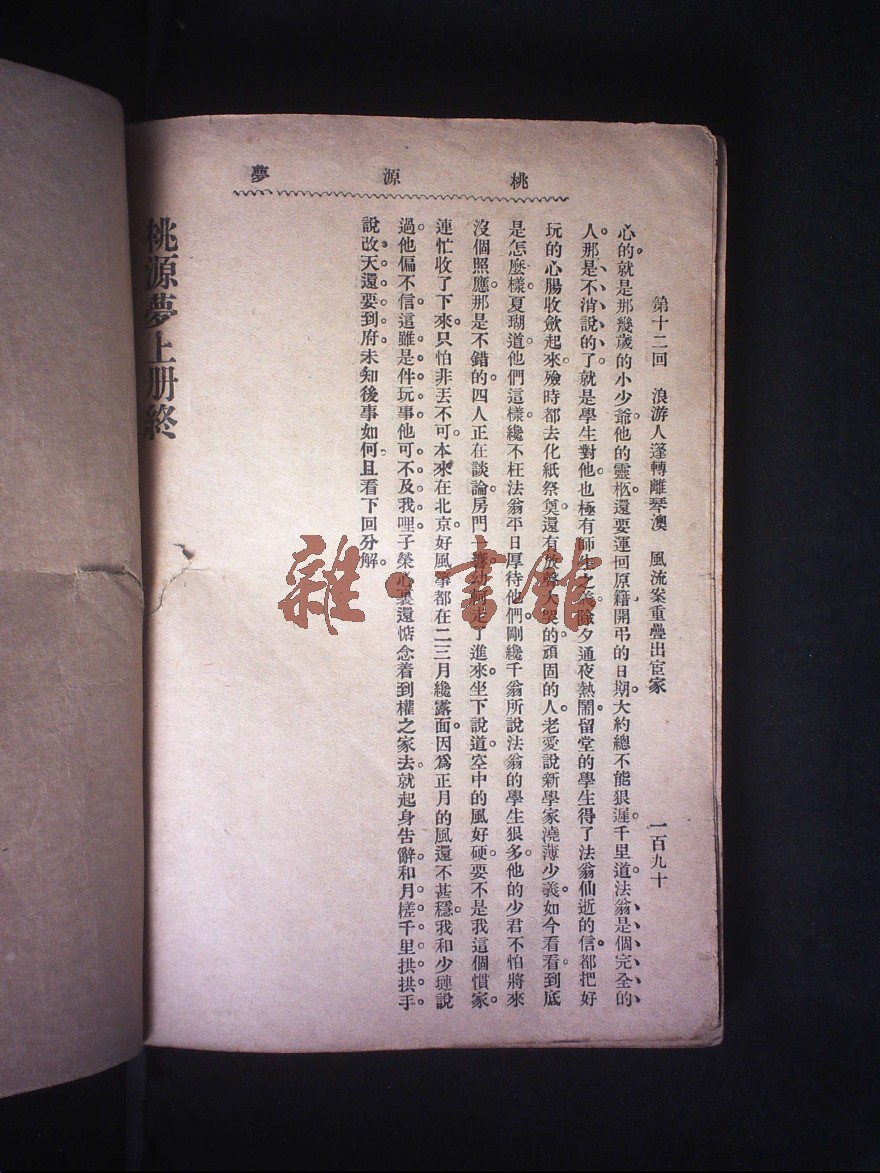 桃源夢
第十二回　浪游人蓬轉離琴澳　風流案重疊出宦家　一百九十
心的。就是那幾歲的小少爺。他的靈柩。還要運回原籍。開弔的日期。大約總不能狠遲。千里道。法翁是個完全的
人。那是不消說的了。就是學生對他。也極有師生之義。除夕通夜熱鬧。留堂的學生。得了法翁仙逝的信。都把好
玩的心腸收歛起來。殮時都去化紙祭奠。還有放聲大哭的。頑固的人。老愛說新學家澆薄少義。如今看看。到底
是怎麼樣。夏瑚道。他們這樣。纔不枉法翁平日厚待他們。剛纔千翁所說法翁的學生狠多。他的少君不怕將來
沒個照應。那是不錯的。四人正在談論。房門一走了進來。坐下說道。空中的風好硬。要不是我這個慣家。
連忙收了下來。只怕非丟不可。本來在北京好風事都在二三月纔露面。因爲正月的風還不甚穩。我和少璉說
過。他偏不信。這雖是件玩事。他可不及我哩。子榮心裏還惦念着到權之家去。就起身告辭。和月槎千里拱拱手。
說改天還要到府。未知後事如何。且看下回分解。
桃源夢上册終
雜·書館